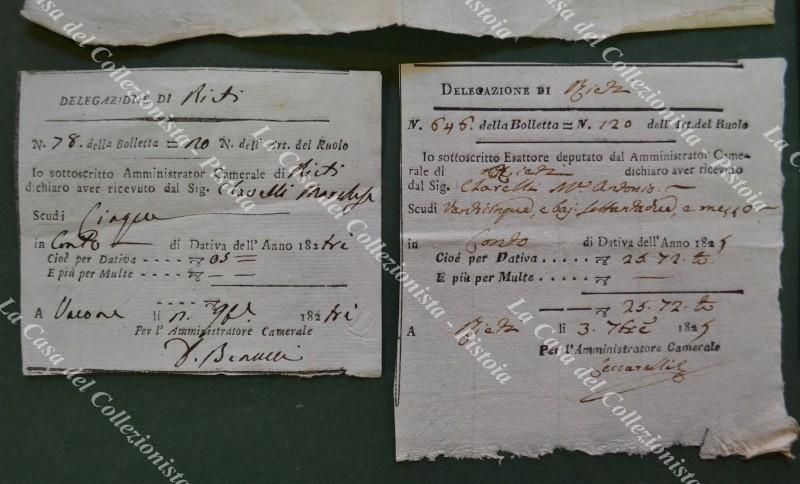 DELEGAZIONE DI Rieti
N. 78. della Bolletta = 120 N. dell'Art. del Ruolo
Io sottoscritto Amministrator Camerale di Rieti
dichiaro aver ricevuto dal Sig. Clarelli Marchese
Scudi Cinque
in Conto di Dativa dell'Anno 182 tre
Cioè per Dativa - - - - 05 =
E più per Multe - - - -
A Vacone li 9bre 182 tre
Per l'Amministratore Camerale
DELEGAZIONE DI Rieti
N. 646. della Bolletta = N. 120 dell'Art. del Ruolo
Io sottoscritto Esattore deputato dal Amministrator Came-
rale di Rieti dichiaro aver ricevuto
dal Sig. Clarelli Me Antonio
Scudi Venticinque, e baj. settantadue, e mezzo
in Conto di Dativa dell'Anno 1825
Cioè per Dativa . . . . 25.72.½
E più per Multe . . . .
25.72.½
A Rieti li 3. 7bre 1825
Per l'Amministratore Camerale
La Casa del Collezionista - Pistoia